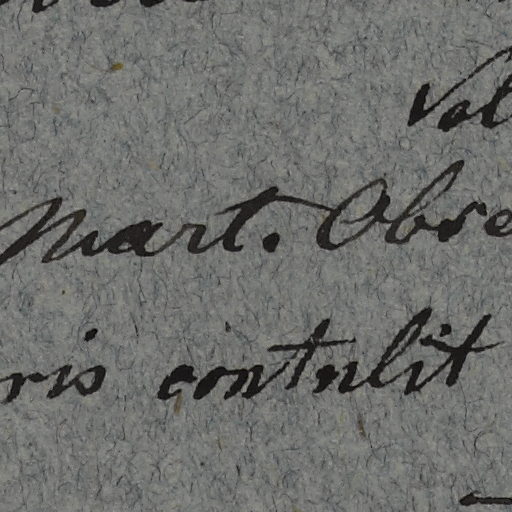 Vol
Mart. Obre
ris contulit